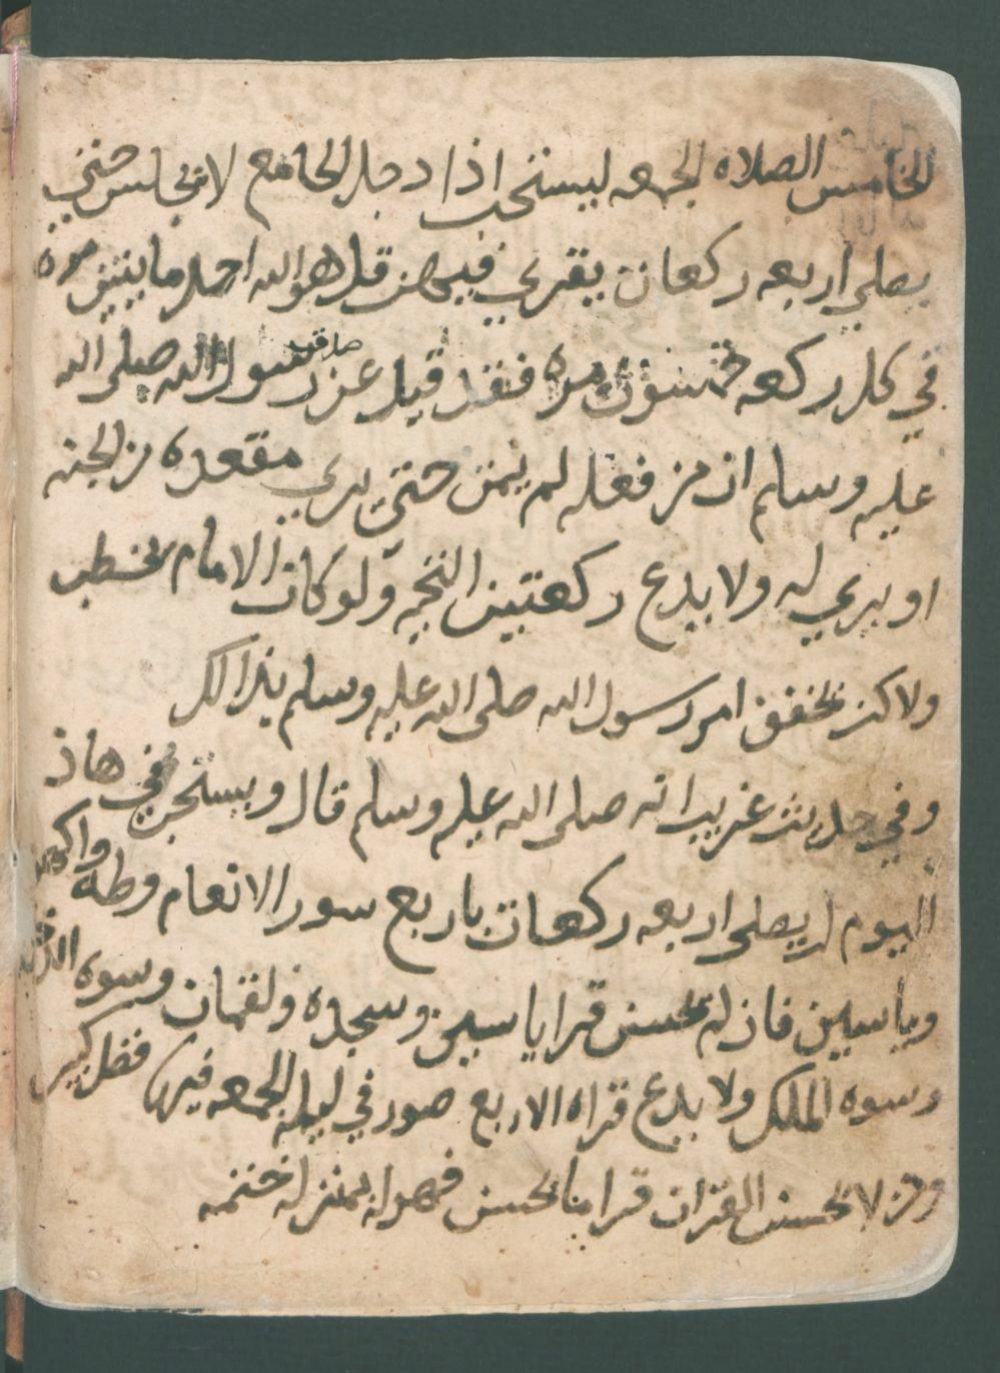 الخامس الصلاه الجمعه ليستحب اذا دخل الجامع لا يجلس حتى
يصلي اربعه ركعات يقري فيهن قل هو الله احد مايتين مره
في كل ركعه خمسون مره فقد قيل عن رسول الله صلى الله
عليه وسلم ان من فعله لم يمت حتى يري مقعده من الجنه
او يري له ولا يدع ركعتين التحيه ولو كان الامام يخطب
ولاكن يخفف امر رسول الله صلى الله عليه وسلم بذالك
وفي حديث غريب انه صلى الله عليه وسلم قال ويستحب في هاذ
اليوم ان يصلى اربعه ركعات باربع سور الانعام وطه
وياسين فان لم يحسن قرا ياسين وسجده ولقمان وسوه
وسوه الملك ولا يدع قراه الاربع صور في ليله الجمعه فيها فضل كبير
ومن لا يحسن القران قرا ما يحسن فهو له بمنزله ختمه